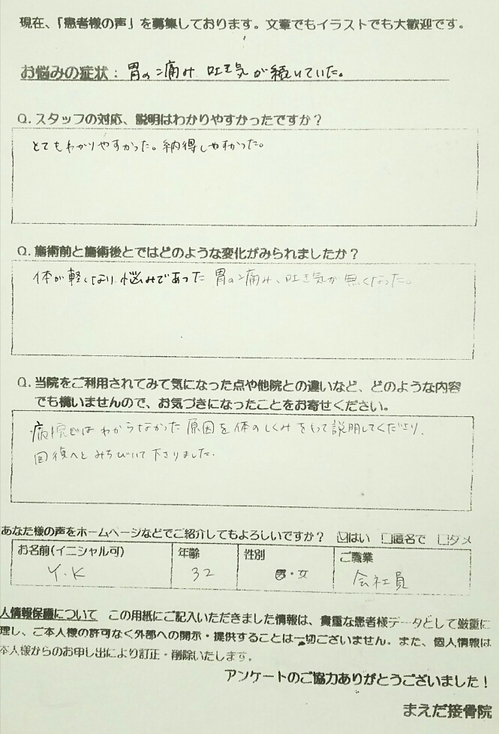 現在、「患者様の声」を募集しております。文章でもイラストでも大歓迎です。
お悩みの症状：胃の痛み 吐き気が続いていた。
Q. スタッフの対応、説明はわかりやすかったですか？
とてもわかりやすかった。納得しやすかった。
Q. 施術前と施術後とではどのような変化がみられましたか？
体が軽くなり、悩みであった 胃の痛み、吐き気が無くなった。
Q. 当院をご利用されてみて気になった点や他院との違いなど、どのような内容
でも構いませんので、お気づきになったことをお寄せください。
病院ではわからなかった原因を体のしくみをもって説明してくださり、
回復へとみちびいて下さりました。
あなた様の声をホームページなどでご紹介してもよろしいですか？ ☑はい □匿名で □ダメ
お名前(イニシャル可) 年齢 性別 ご職業
Y.K 32 男・女 会社員
人情報保護について この用紙にご記入いただきました情報は、貴重な患者様データとして厳重に
理し、ご本人様の許可なく外部への開示・提供することは一切ございません。また、個人情報は
本人様からのお申し出により訂正・削除いたします。
アンケートのご協力ありがとうございました！
まえだ接骨院